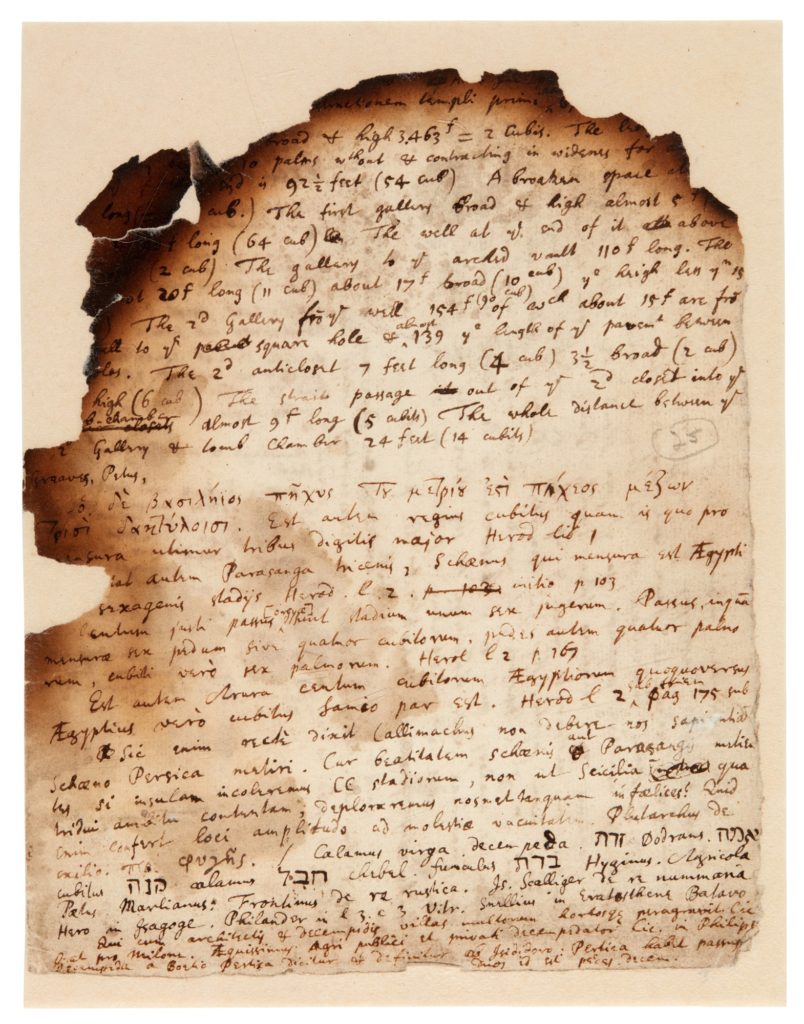 templi primi
broad & high 3.463 f = 2 Cubis. The
palms wthout & contracting in widenes for
is 92½ feet (54 cub) A broaken space
long cub.) The first gallery broad & high almost 5
long (64 cub) The well at ye end of it above
(2 cub) The gallery to ye arched vault 110 f long. The
20 f long (11 cub) about 17 f broad (10 cub) ye heigh less yn 15
The 2d Gallery frō ye well 154 f (90 cub) of wch about 15 f are frō
to ye square hole & almost 139 ye length of ye pavemt between
The 2d anticloset 7 feet long (4 cub) 3½ broad (2 cub)
high (6 cub) The strait passage out of ye 2d closet into ye
b-chamber almost 9 f long (5 cubits) The whole distance between ye
2d Gallery & tomb Chamber 24 feet (14 cubits)
25
Greaves, Petus,
δὲ βασιλήιος πῆχυς τȣ͂ μετρίȣ ἐςὶ πήχεος μέζων
τρισὶ δακτύλοισι. Est autem regius cubitus quam is quo pro
mensura utimur tribus digitis major Herod lib 1
autem Parasanga tricenis, Schœnus qui mensura est Ægypti
sexagenis stadijs Herod. l. 2. initio p 103
Centum justi passus stadium unum sex jugerum. Passus, inquā
mensuræ sex pedum sive quatuor cubitorum, pedes autem quatuor palmo
rum, cubiti verò sex palmorum. Herod l 2 p 167
Est autem Arura centum cubitorum Ægyptiorum quoquoversus
Ægyptius verò cubitus Samio par est. Herod l 2, pag 175 sub finem
Sic enim rectè dixit Callimachus non debere nos sapientiā
Schœno Persica metiri. Cur beatitatem schœnis aut Parasangis metien
tes si insulam incoleremus CC stadiorum, non ut Scicilia qua
tridui ambitu contentam, deploraremus nosmet tanquam infœlices? Quid
enim confert loci amplitudo ad molestiæ vacuitatem. Plutarchus de
exilio. φυγῆς. Calamus virga decempeda. זרת Dodrans. אמה
cubitus קנה calamus חבל chebel. funiculus ברת Hyginus. Agricola
Petus Martianus. Frontinus de re rustica. Js. Scalliger de re nummaria
Hero in Isagoge. Philander in l 3. c 3 Vitr. Snellius in Eratosthene Batavo
Qui cum architectis & decempedis villas multorum hortosque peragravit Cic
pro Milone. Æquissimus Agri publici et privati decempedator Cic. in Philipp
Decempeda a Boetio Pertica dicitur & definitur ab Isidoro: Pertica habet passus
duos id est pedes decem.